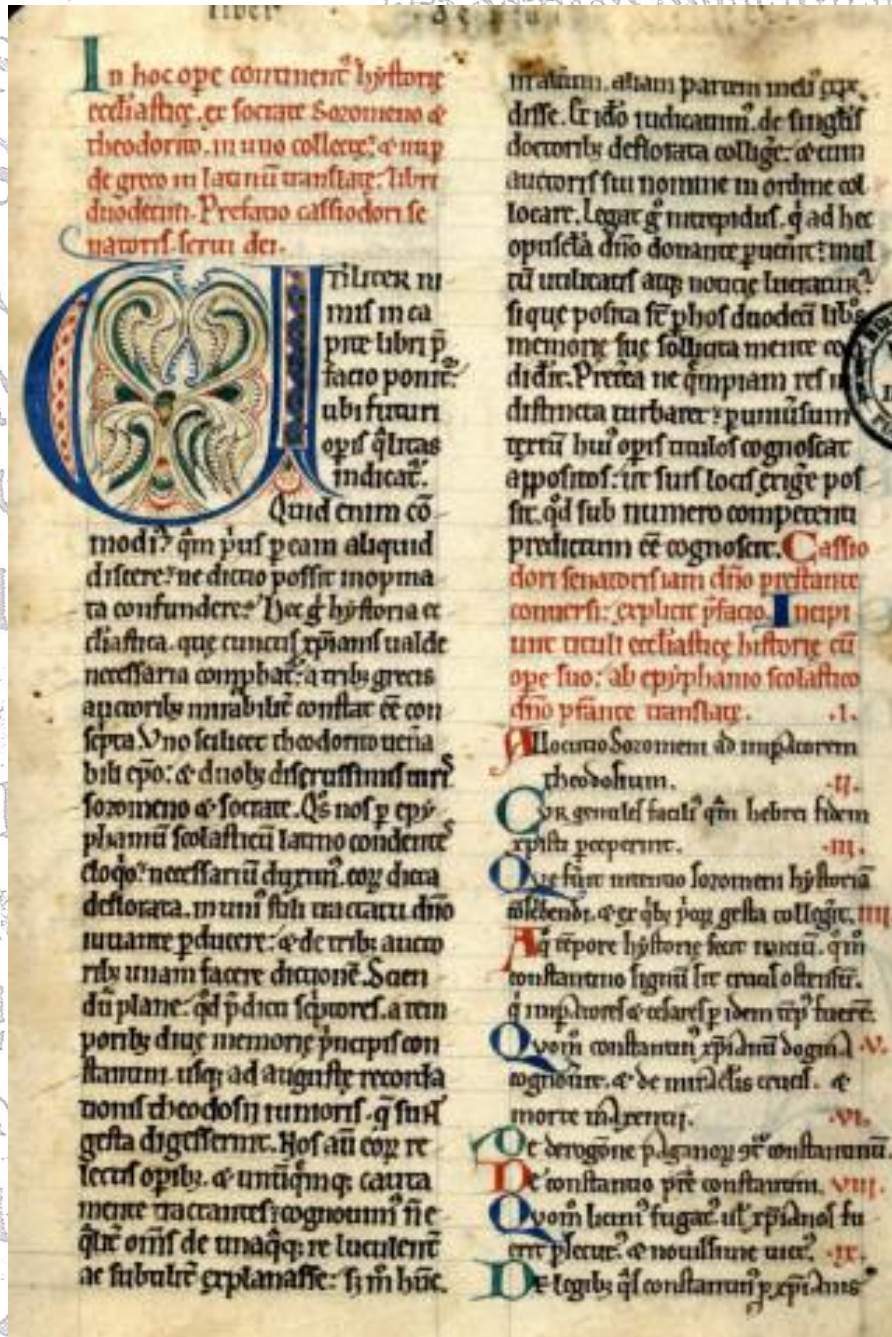 In hoc ope continent᷑ hystorię
eccliastice. ex socrate Sozomeno &
theodorito. in uno collecte: & nup
de greco in latinū translate: libri
duodecim. Prefatio cassiodori se
natoris. serui dei.
UTILITER NI
mis in ca
pite libri p̄
facio ponit᷑:
ubi futuri
opis q̄litas
indicat᷑.
Quid enim cō
modi? qm̄ p̓us p eam aliquid
discere: ne dictio possit inopina
ta confundere? Hec g̓ hystoria ec
cliastica. que cunctis xp̄ianis ualde
necessaria comphat᷑: a tribȝ grecis
auctoribȝ mirabilit̄ constat eē con
scpta. Vno scilicet theodorito uena
bili epo: & duobȝ disertissimis uiris
sozomeno & socrate. Q̓s nos p epy
phaniū scolasticū latino condentes
eloq̓o: necessariū duxim᷒. eoꝝ dicta
deflorata. in uni᷒ stili tractatū dn̄o
iuuante pducere: & de tribȝ aucto
ribȝ unam facere dictionē. Scien
dū plane. qd̄ p̄dicti sc̓ptores. a tem
poribȝ diuę memorię p̓ncipis con
stantini. usqȝ ad augustę recorda
tionis theodosii iunioris. q̄ sunt
gesta digesserint. Nos aū eoꝝ re
lectis opibȝ. & unūq̄mqȝ cauta
mente tractantes: cognouim᷒ n̄ e
q̄lit̄ om̄s de unaq̄qȝ re luculent̄
ac subtilit̄ explanasse: sȝ m̄ hūc.
in aliū. aliam partem meli᷒ exꝑ
disse. Et idō iudicauim᷒. de singlis
doctoribȝ deflorata collig̓e: & cum
auctoris sui nomine in ordine col
locare. Legat g̓ intrepidus. q̓ ad hec
opuscla dn̄o donante puenit: mul
tū utilitatis atqȝ noticię lucratur᷒:
si que posita s̄t phos duodecī libros
memorię suę sollicita mente co
didit. Prea ne q̄mpiam res in
distincta turbaret: pumusum
textū hui᷒ opis titulos cognoscat
appositos: ut suis locis exig̓e pos
sit. qd̄ sub numero competenti
predictum eē cognoscit. Cassio
dori senatoris iam dn̄o prestante
conuersi: explicit p̄facio. Incipi
unt tituli eccliastice historię cū
ope suo: ab epyphanio scolastico
dn̄o p̄stante translate. .I.
Allocutio Sozomeni ad impatorem
theodosium. .II.
Cvr gentiles facili᷒ qm̄ hebrei fidem
xpisti pceperint. .III.
Que fūit intentio sozomeni hystoriā
& ex qbȝ p̓oꝝ gesta collegit. IIII
A q̓ tēpore hystorię fecit iniciū. qm̄
constantino signū sit crucis ostensū.
q̓ impatores & cesares p idem tēp᷒ fuerit̄.
Qvom̄ constantin᷒ xp̄ianū dogma .V.
cognouit. & de miraclis crucis. &
morte maxentii. .VI.
De derogōne paganoꝝ ꝯt᷑ constantinū.
De constantio pre constantini. VIII.
Qvom̄ licini᷒ fugat᷑ ul̄ xp̄ianos fu
erit psecut᷒. & nouissime uict᷒. .IX.
De legibȝ q̄s constantin᷒ p xp̄ianis